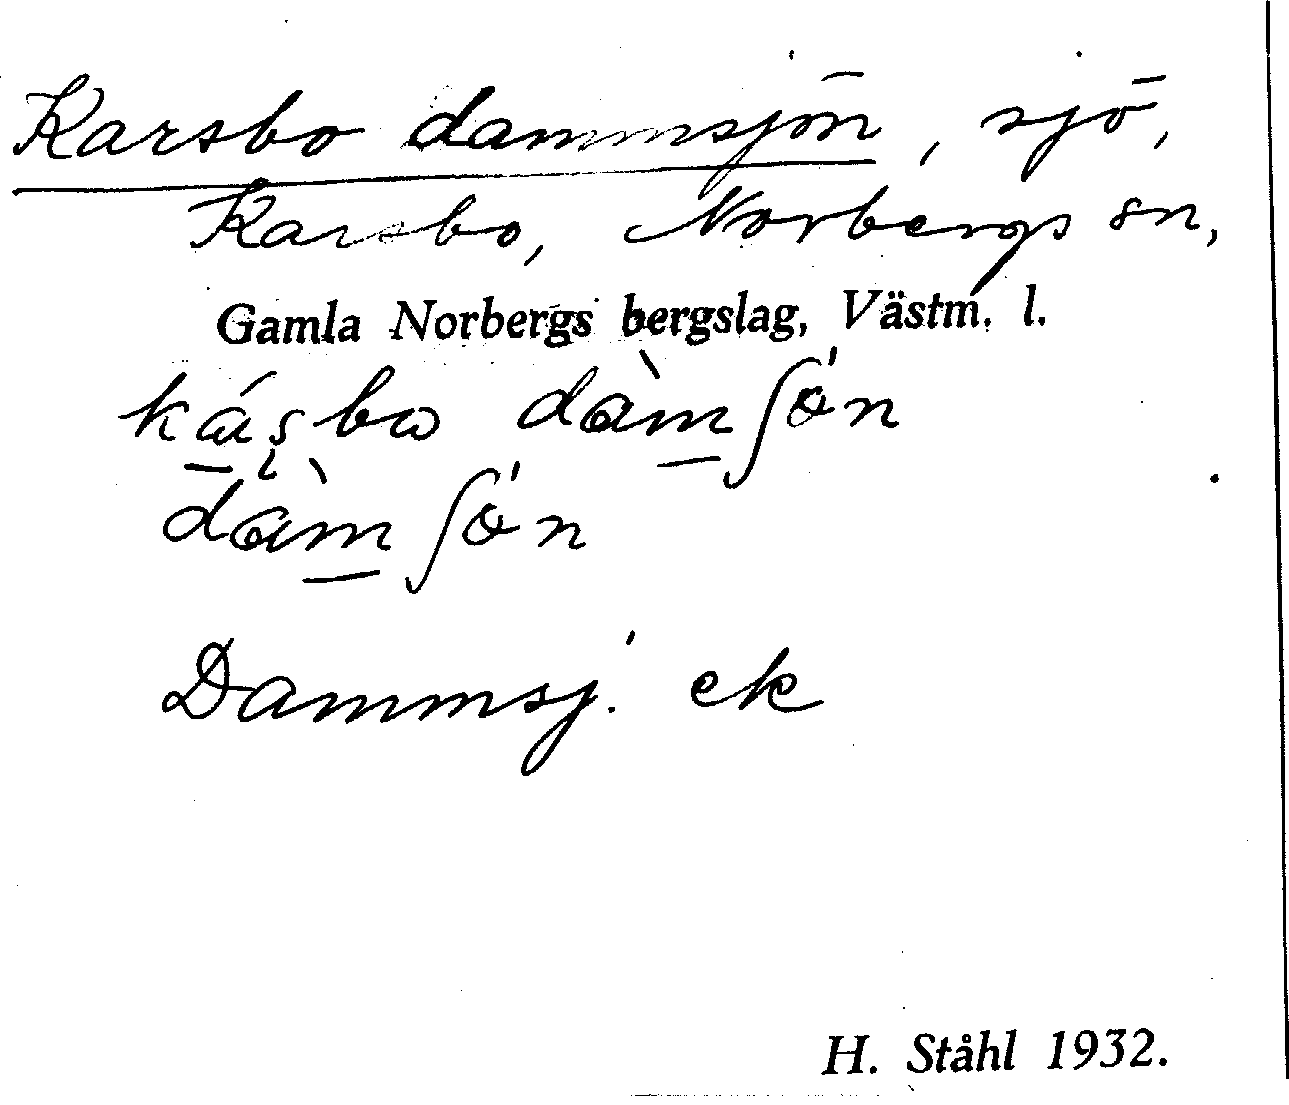 Karsbo dammsjön, sjö,
Karsbo, Norbergs sn,
Gamla Norbergs bergslag, Västm. l.
káʂbω dàmʃɵ́n
dàmʃɵ́n
Dammsj. ek
H. Ståhl 1932.